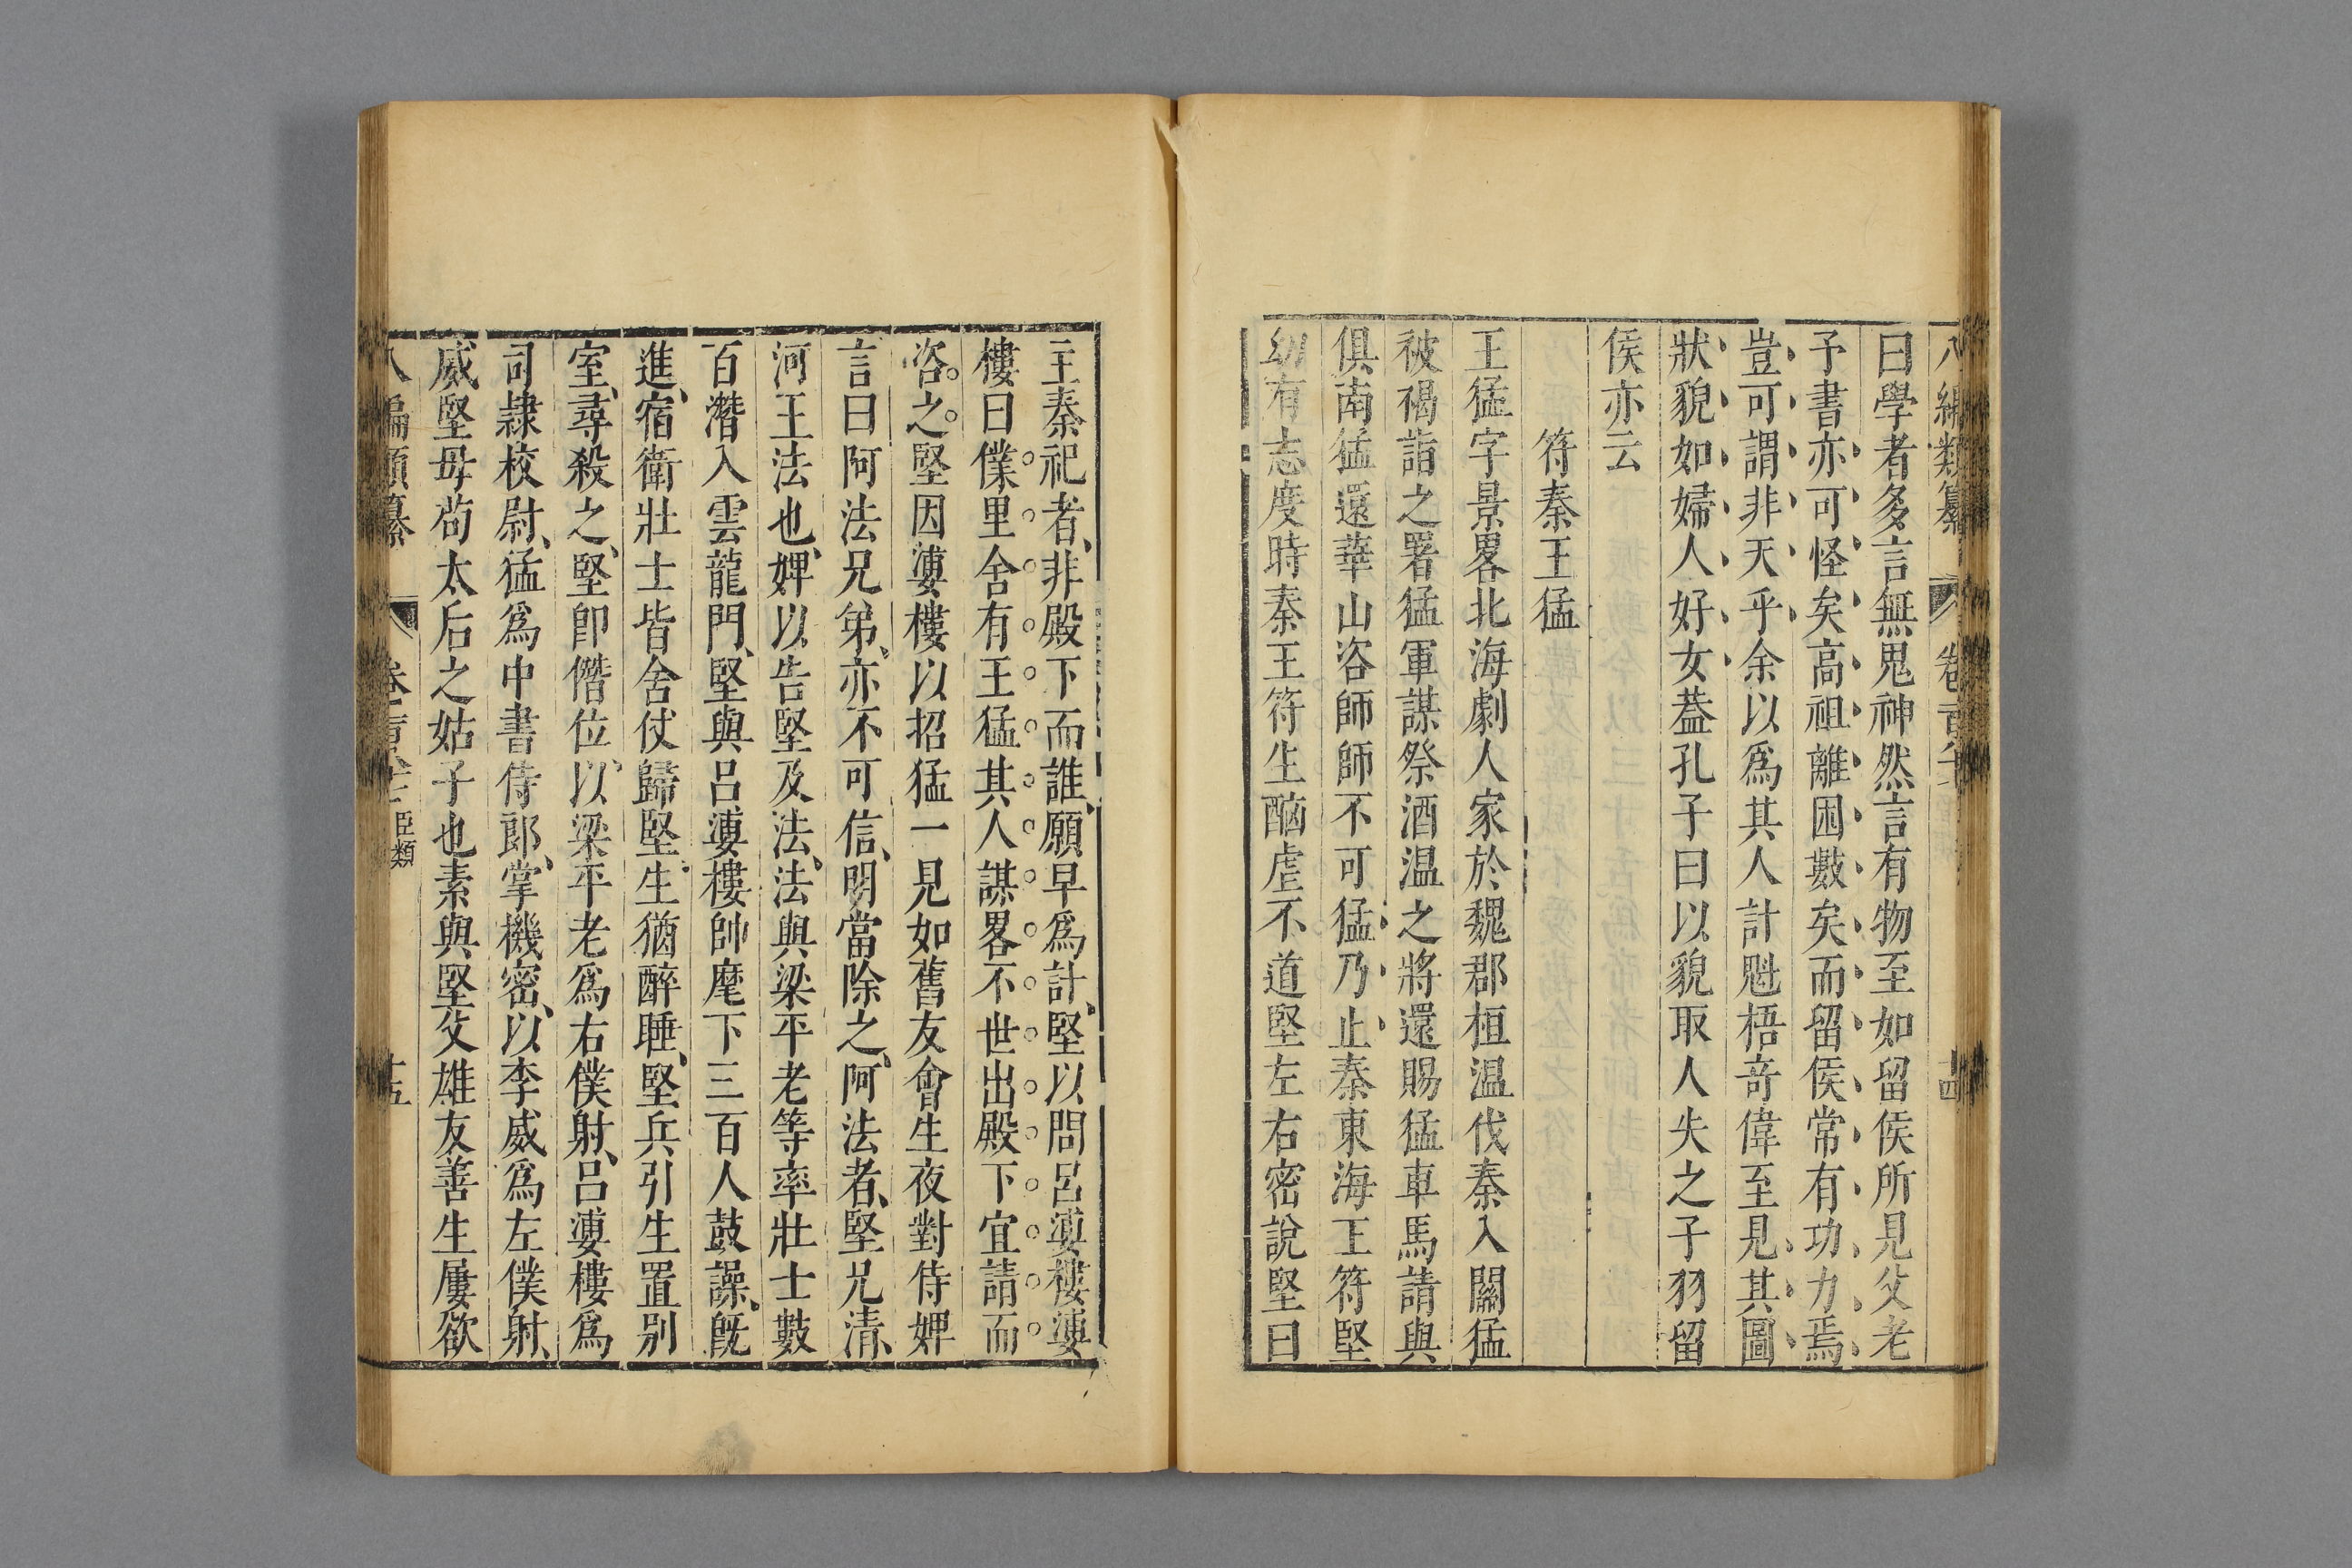 曰學者多言無鬼神然言有物至如留侯所見父老
予書亦可怪矣高祖離困數矣而留侯常有功力焉
豈可謂非天乎余以爲其人計魁梧竒偉至見其圖
狀貌如婦人好女葢孔子曰以貌取人失之子羽留
侯亦云
符秦王猛
王猛字景畧北海劇人家於魏郡桓温伐秦入關猛
被褐詣之署猛軍謀祭酒温之將還賜猛車馬請與
俱南猛還華山咨師師不可猛乃止秦東海王符堅
幼有志度時秦王符生酗虐不道堅左右密說堅曰
主秦祀者非殿下而誰願早爲計堅以問呂婆樓婆
樓曰僕里舍有王猛其人謀畧不世出殿下宜請而
咨之堅因婆樓以招猛一見如舊友會生夜對侍婢
言曰阿法兄弟亦不可信明當除之阿法者堅兄清
河王法也婢以告堅及法法與梁平老等率壯士數
百潛入雲龍門堅與呂婆樓帥麾下三百人鼓譟旣
進宿衛壯士皆舍仗歸堅生猶醉睡堅兵引生置别
室尋殺之堅卽僭位以梁平老爲右僕射呂婆樓爲
司隷校尉猛爲中書侍郎掌機密以李威爲左僕射
威堅母茍太后之姑子也素與堅父雄友善生屢欲
八編類纂 卷 臣類 十五